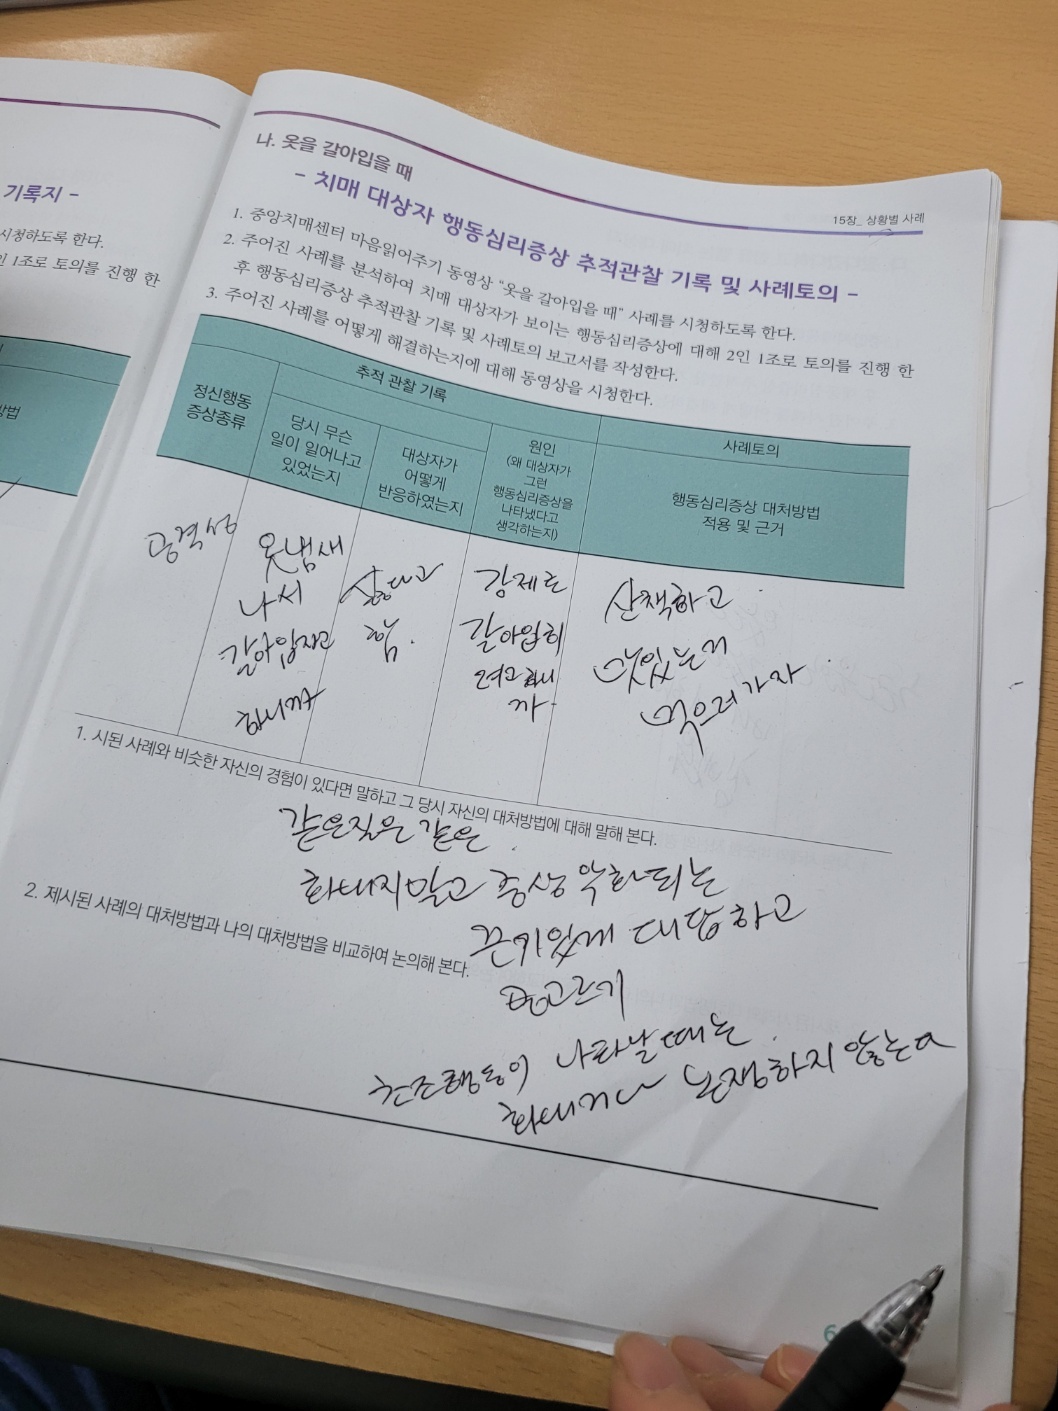 기록지 -
시청하도록 한다.
인 1조로 토의를 진행 한
방법
나. 옷을 갈아입을 때
15장_ 상황별 사례
- 치매 대상자 행동심리증상 추적관찰 기록 및 사례토의 -
1. 중앙치매센터 마음읽어주기 동영상 "옷을 갈아입을 때" 사례를 시청하도록 한다.
2. 주어진 사례를 분석하여 치매 대상자가 보이는 행동심리증상에 대해 2인 1조로 토의를 진행 한
후 행동심리증상 추적관찰 기록 및 사례토의 보고서를 작성한다.
3. 주어진 사례를 어떻게 해결하는지에 대해 동영상을 시청한다.
정신행동
증상종류
추적 관찰 기록
당시 무슨
일이 일어나고
있었는지
대상자가
어떻게
반응하였는지
원인
(왜 대상자가
그런
행동심리증상을
나타냈다고
생각하는지)
사례토의
행동심리증상 대처방법
적용 및 근거
공격성
옷냄새
나서
갈아입자고
하니까
싫다고
함.
강제로
갈아입히
려고 하니
까
산책하고
맛있는거
먹으러가자
1. 시된 사례와 비슷한 자신의 경험이 있다면 말하고 그 당시 자신의 대처방법에 대해 말해 본다.
같은질문 같은
화내지말고 증상 악화되는
2. 제시된 사례의 대처방법과 나의 대처방법을 비교하여 논의해 본다.
끈기있게 대답하고
나타날때는
화내거나 논쟁하지 않는다